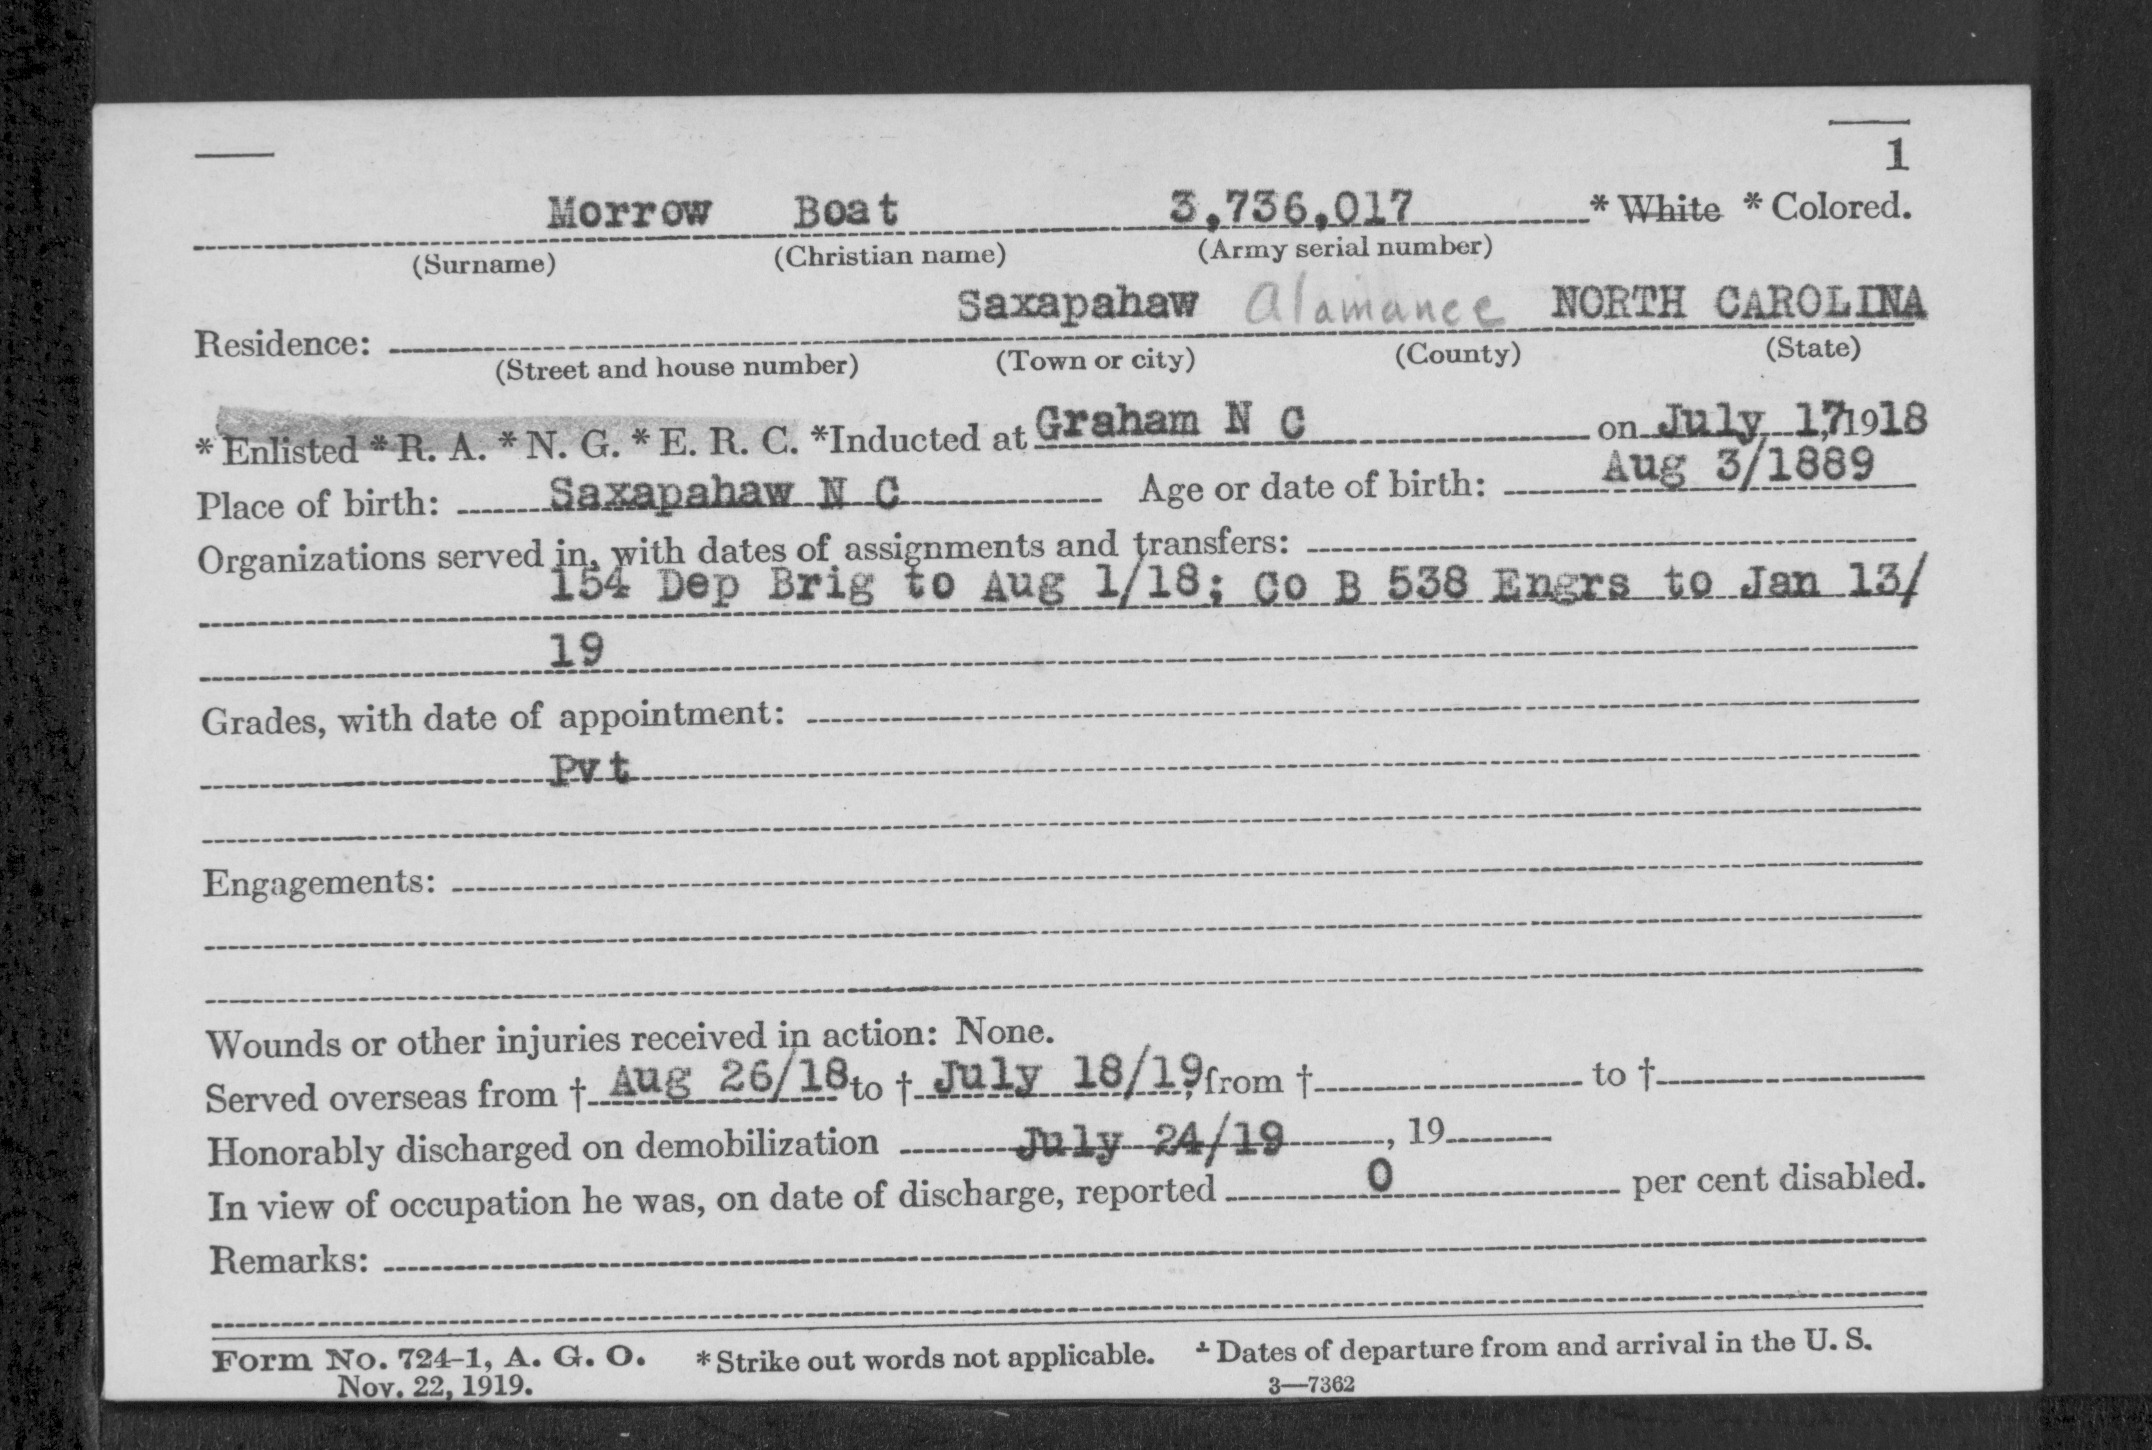 1
Morrow Boat 3,736,017 * White * Colored.
(Surname) (Christian name) (Army serial number)
Residence: Saxapahaw Alamance NORTH CAROLINA
(Street and house number) (Town or city) (County) (State)
* Enlisted * R. A. * N. G. * E. R. C. *Inducted at Graham N C on July 17, 1918
Place of birth: Saxapahaw N C Age or date of birth: Aug 3/1889
Organizations served in, with dates of assignments and transfers:
154 Dep Brig to Aug 1/18; Co B 538 Engrs to Jan 13/
19
Grades, with date of appointment:
Pvt
Engagements:
Wounds or other injuries received in action: None.
Served overseas from † Aug 26/18 to † July 18/19, from † to †
Honorably discharged on demobilization July 24/19, 19
In view of occupation he was, on date of discharge, reported 0 per cent disabled.
Remarks:
Form No. 724-1, A. G. O. * Strike out words not applicable. † Dates of departure from and arrival in the U. S.
Nov. 22, 1919. 3—7362